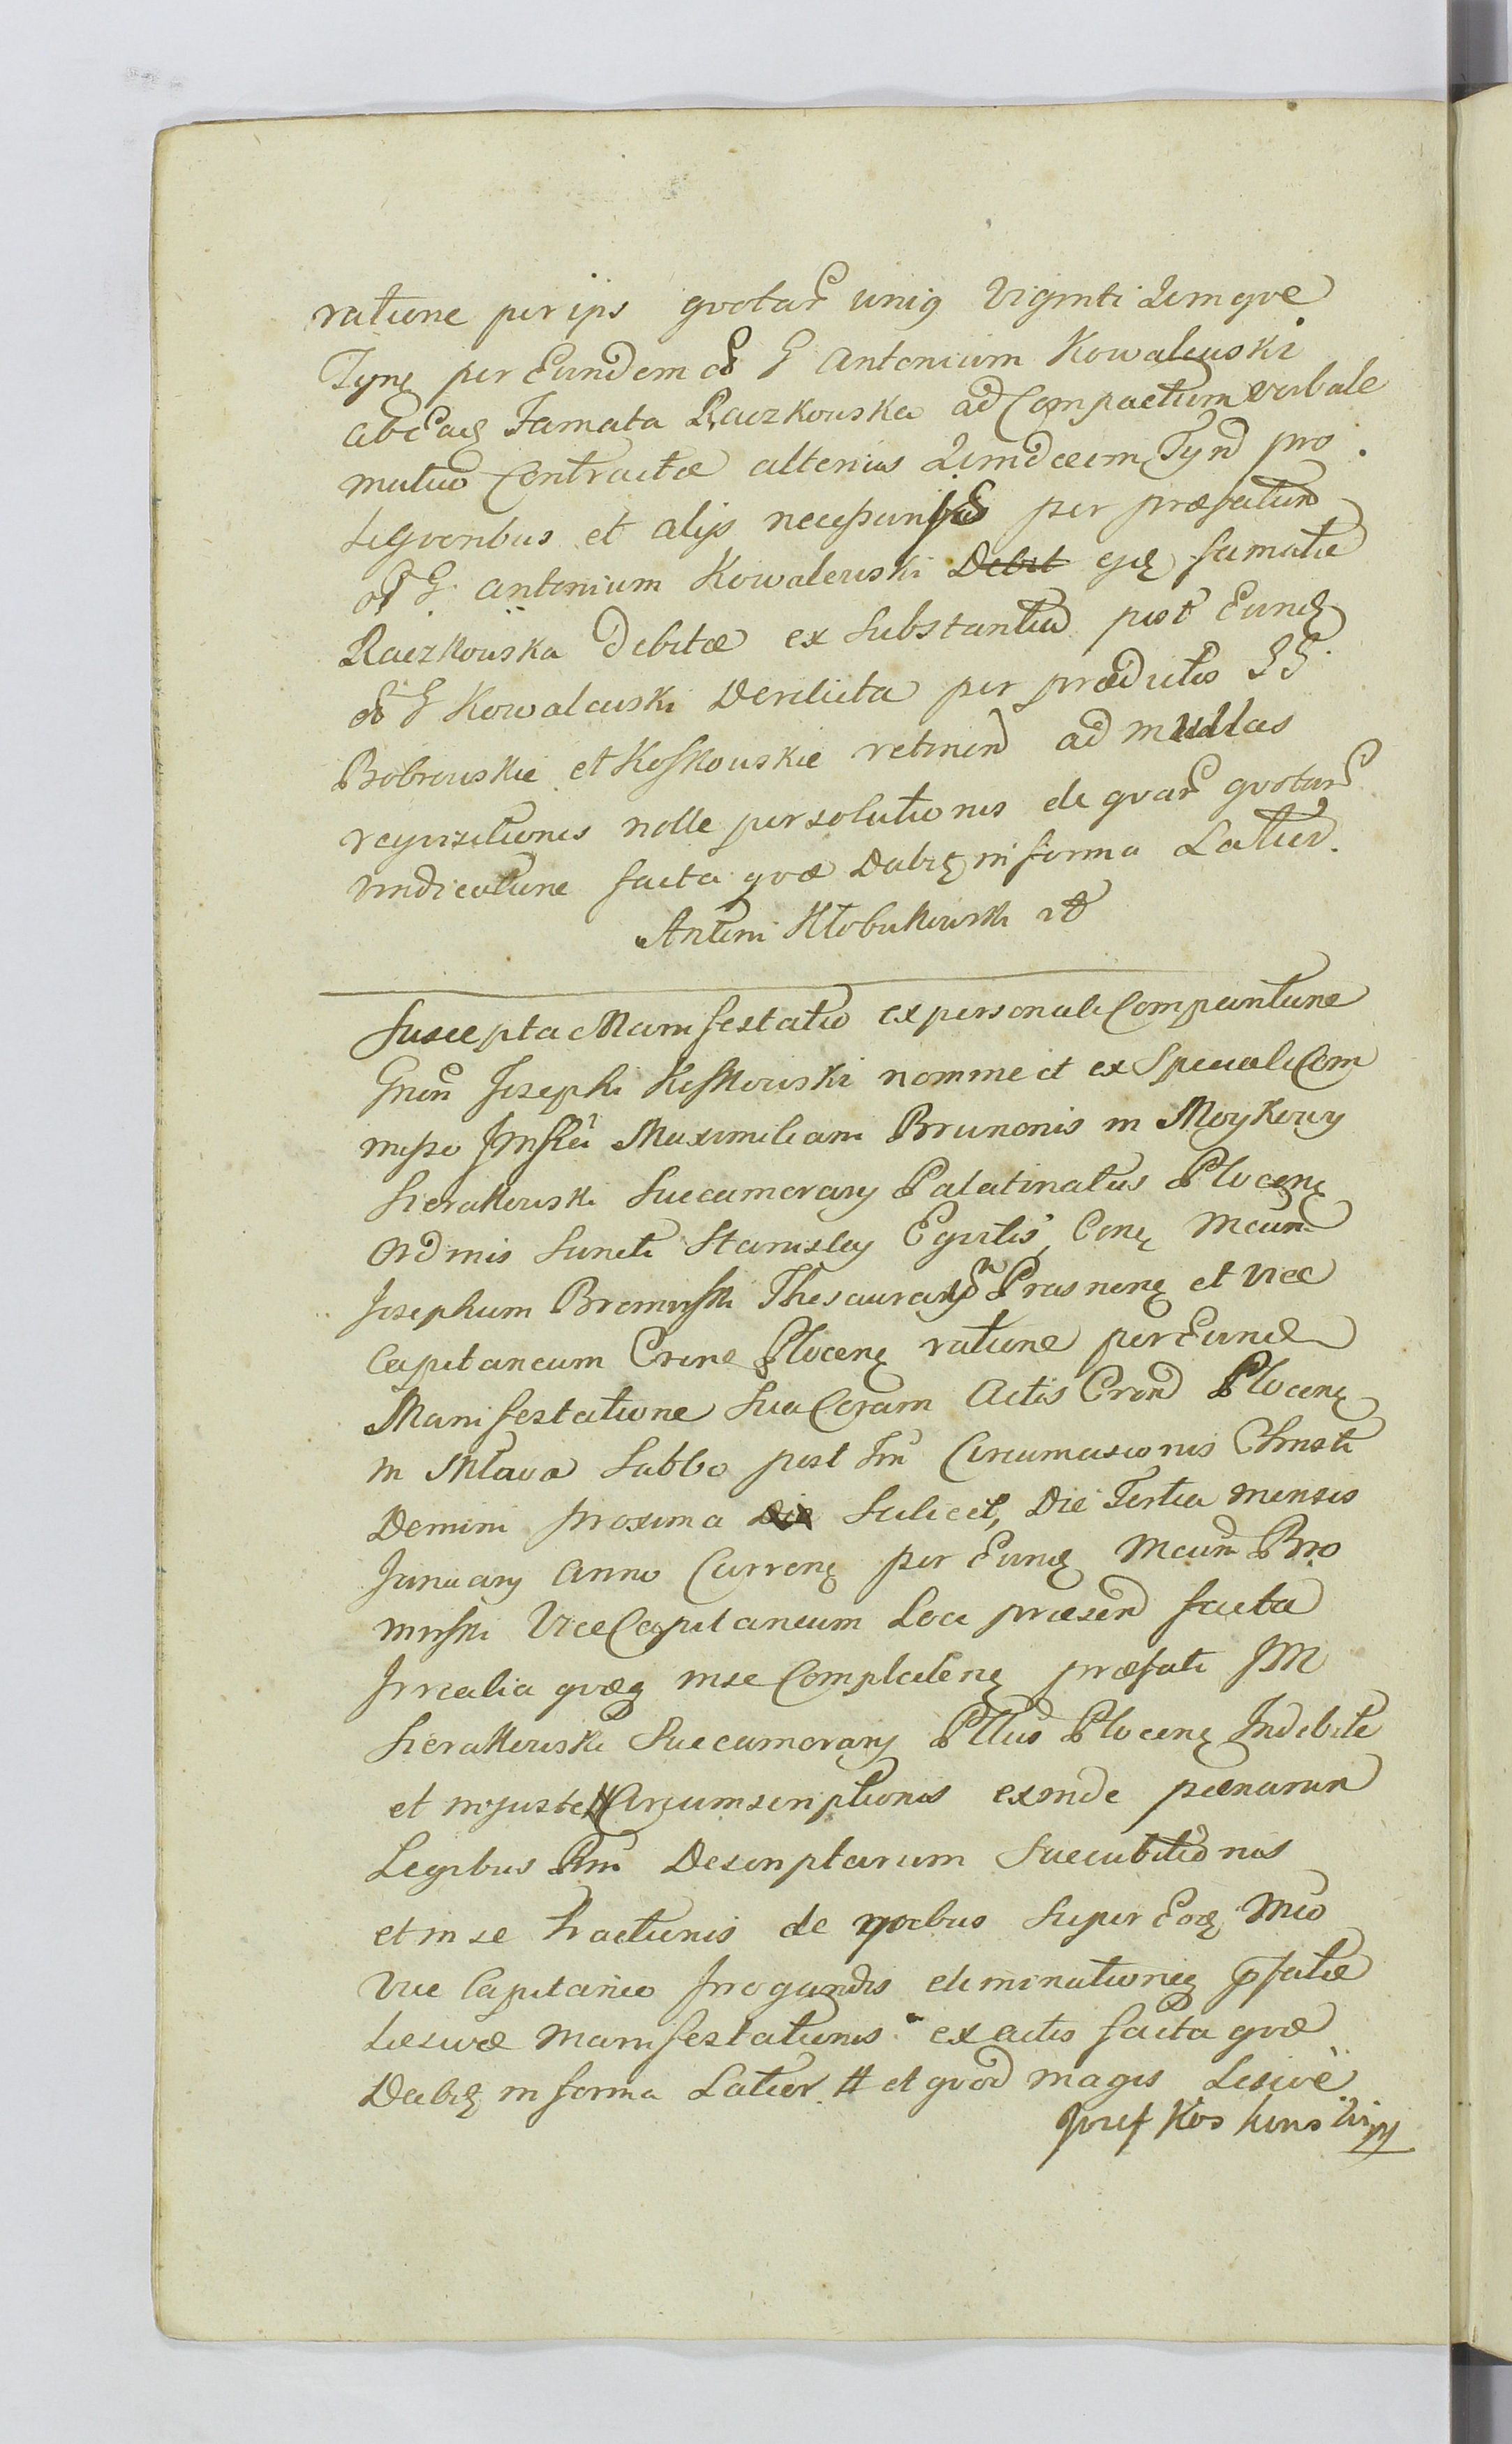 ratione per ips qvotar unig Viginti Qvinqve
Tyng per Eundem ol G Antonium Kowalewski
ab Ead Famata Raczkowska ad Compactum verbale
mutuo Contractæ alterius Qvindecim Tynd pro
Liqvoribus et alijs necessarijs per præfatum
ol G Antonium Kowalewski Debit ejd famatæ
Raczkowska debitæ ex Substantia post Eund
ol G Kowalewski Derelicta per prædictos GG
Bobrowskie et Koskowskie retinend ad nullas
reqvisitiones nolle persolutionis de qvar qvotar
vindicatione facta qvæ Dabitg in forma Latiori.
Antoni Kłobukowski
Suscepta Manifestatio ex personali Comparitione
Gnsi Josephi Koskowski nomine et ex Speciali Com
misso JMsci Maximiliani Brunonis in Moykowy
Sierakowski Succamerary Palatinatus Ploceng
Ordinis Sancti Stanislay Eqvitis, Cong Mcum
Josephum Bromirski Thesaurarium Prasneng et Vice
Capitaneum Crens Ploceng ratione per Eund
Manifestatione Sua Coram Actis Crend Ploceng
in Mlava Sabbo post Fm Circumcisionis Christi
Domini proxima Die Scilicet, Die Tertia mensis
January Anno Curreng per Eund Mcum Bro
mirski Vice Capitaneum Loci præsend facta
Irrealia qvæg in se Complecteng præfati JM
Sierakowski Succamerary Pltus Ploceng Indebite
et injuste # Circumscriptionis exinde pœnarum
Legibus Rni Descriptarum Succubitionis
et in se Tractionis de qvibus Super Eod Mco
Vice Capitaneo Irrogandis eliminationisg ppfatæ
Læsivæ Manifestationis ex actis facta qvæ
Dabitg in forma Latior. # et qvod magis Lesive
Jozef Koskowski mp